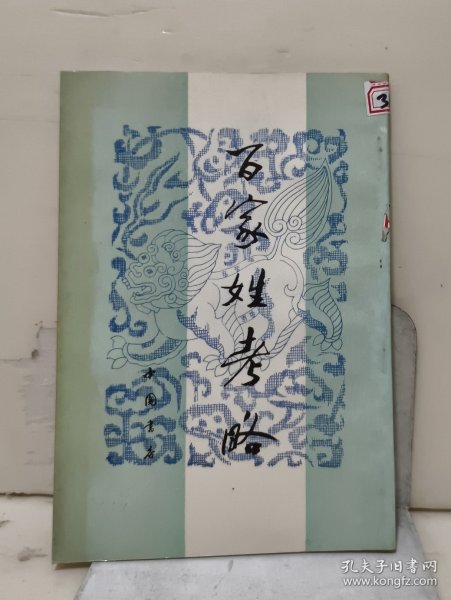 百家姓考略
中国书店
3
孔夫子旧书网
www.kongfz.com